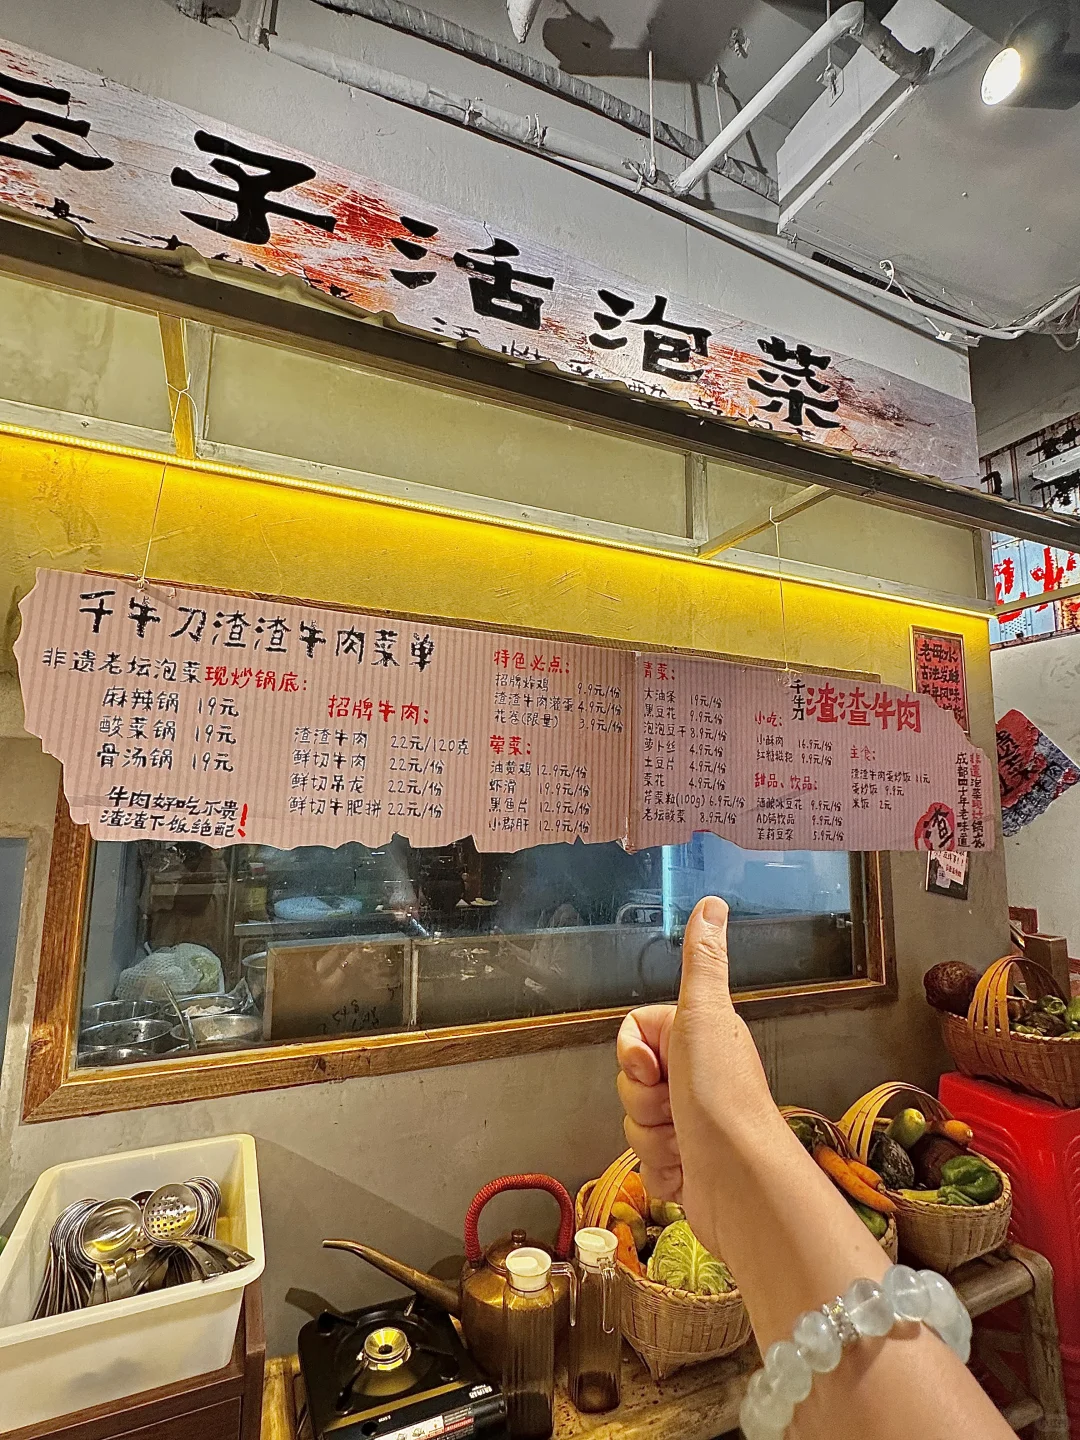 坛子活泡菜
千牛刀渣渣牛肉菜单
非遗老坛泡菜现炒锅底:
麻辣锅 19元
酸菜锅 19元
骨汤锅 19元
牛肉好吃不贵
渣渣下饭绝配!
招牌牛肉:
渣渣牛肉 22元/120克
鲜切牛肉 22元/份
鲜切吊龙 22元/份
鲜切牛肥拼 22元/份
特色必点:
招牌炸鸡 9.9元/份
渣渣牛肉灌蛋 4.9元/份
花卷(限量) 3.9元/份
荤菜:
油黄鸡 12.9元/份
虾滑 19.9元/份
黑鱼片 12.9元/份
小郡肝 12.9元/份
青菜:
大油条 19元/份
黑豆花 9.9元/份
泡泡豆干 8.9元/份
萝卜丝 4.9元/份
土豆片 4.9元/份
菜花 4.9元/份
花菜粒(100g) 6.9元/份
老坛酸菜 8.9元/份
千牛刀
渣渣牛肉
小吃:
小酥肉 16.9元/份
红糖糍粑 9.9元/份
甜品、饮品:
酒酿冰豆花 9.9元/份
AD钙饮品 9.9元/份
茉莉豆浆 5.9元/份
主食:
渣渣牛肉蛋炒饭 11元
蛋炒饭 9.9元
米饭 2元
非遗泡菜现炒锅底
成都四十年老味道
渣
老母水
古法发酵